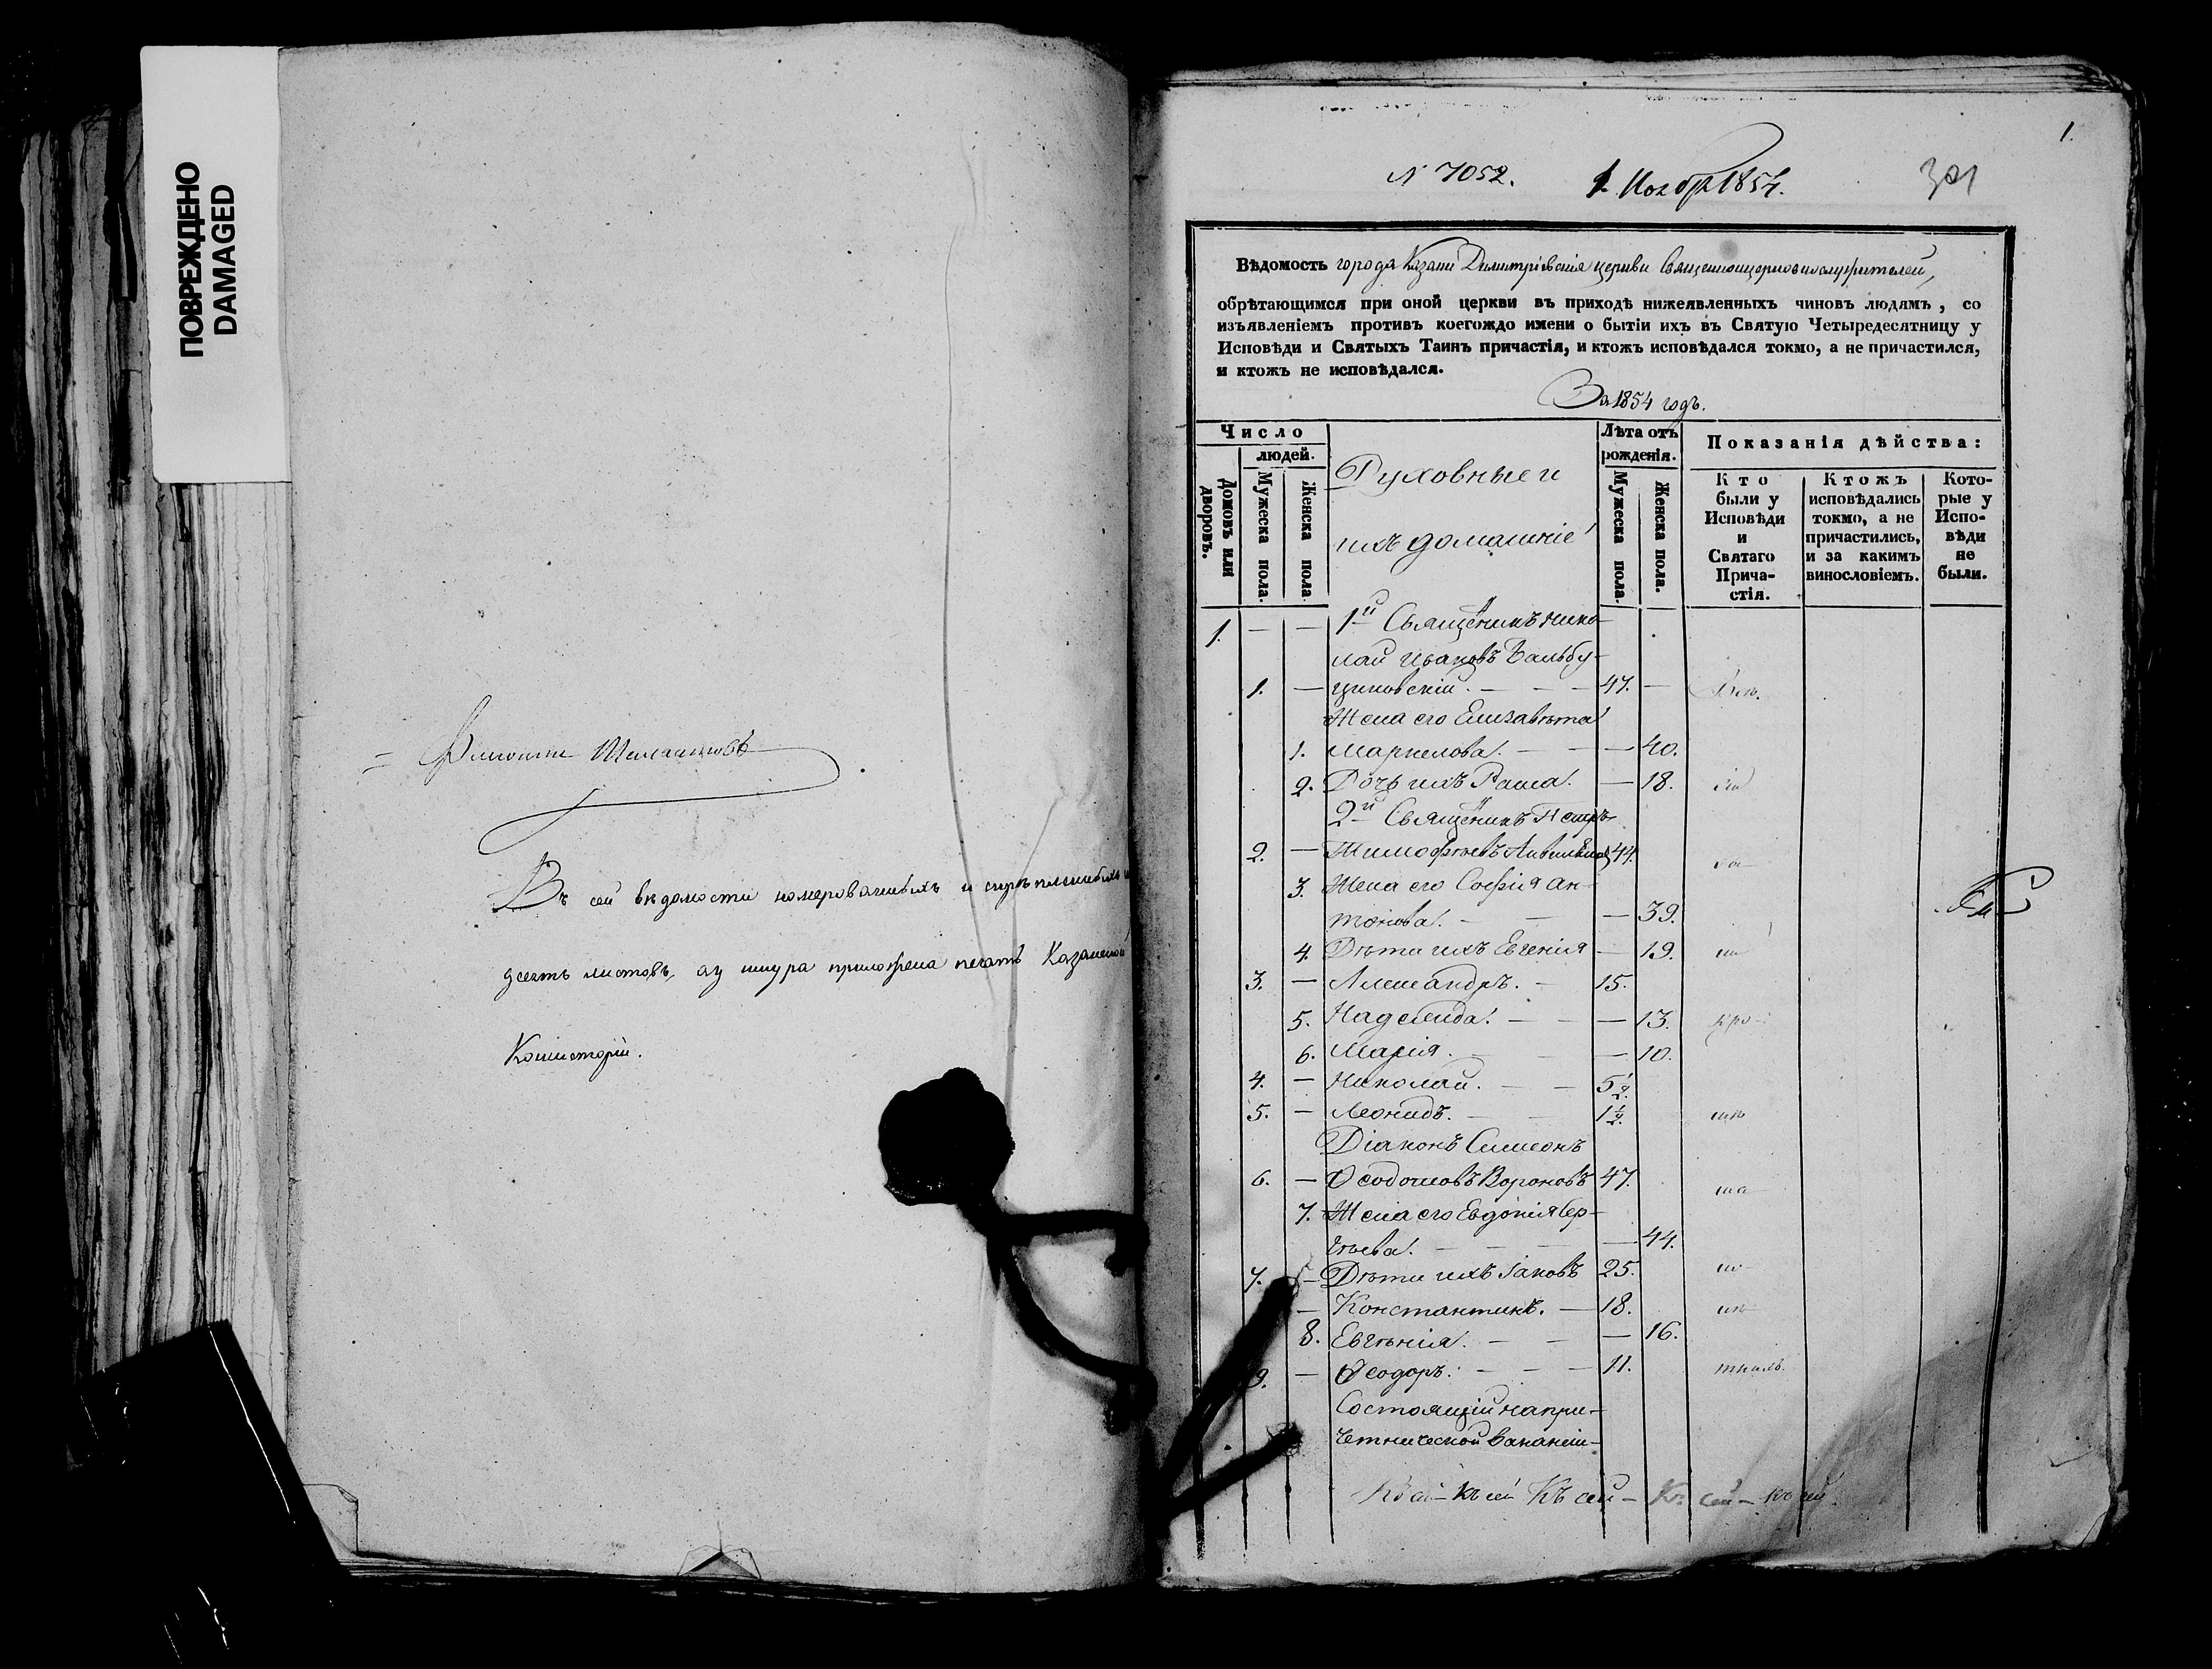 ПОВРЕЖДЕНО
DAMAGED
Шалашновъ
Въ сей вѣдомости номерованныхъ и скрѣпленныхъ
десять листовъ, а у шнура приложена печать Казанской
Консисторіи.
1.
N 7052. 1 Ноябр 1854.
301
Вѣдомость города Казани Димитріевскія церкви священноцерковнослужителей,
обрѣтающимся при оной церкви въ приходѣ нижеявленныхъ чиновъ людямъ, со
изъявленіемъ противъ коегождо имени о бытіи ихъ въ Святую Четыредесятницу у
Исповѣди и Святыхъ Таинъ причастія, и ктожъ исповѣдался токмо, а не причастился,
и ктожъ не исповѣдался.
За 1854 годъ.
Число
людей.
Домовъ или дворовъ.
Мужеска пола.
Женска пола.
Духовные и
ихъ домашніе
Лѣта отъ
рожденія.
Мужеска пола.
Женска пола.
Показанія дѣйства:
Кто
были у
Исповѣди
и
Святаго
Прича-
стія.
Ктожъ
исповѣдались
токмо, а не
причастились,
и за какимъ
винословіемъ.
Кото-
рые у
Испо-
вѣди
не
были.
1. — — 1й Священникъ Нико-
лай Ивановъ Бальбу-
1. — циновскій. — — — 47. —
Жена его Елизавета
1. Маркелова. — — — 40.
2. Дочь ихъ Раиса. — 18.
2й Священникъ Петръ
2. — Тимофѣевъ 44.
3. Жена его Софія Ан-
тонова. — — — 39.
4. Дѣти ихъ Евгенія — 19.
3. — Александръ. — 15.
5. Надежда. — — — 13.
6. Марія. — — — 10.
4. — Николай. — — 5½.
5. — Леонидъ. — 1½.
Діаконъ Симеонъ
6. — Ѳеодоновъ Вороновъ 47.
7. Жена его Евдокія Сер-
гѣева. — — — — 44.
7. — Дѣти ихъ Іаковъ 25.
— Константинъ. — 18.
8. Евгенія. — — — 16.
9. — Ѳеодоръ. — — — 11.
Состоящій на при-
четнической вакансіи —
Къ сей — Къ сей Къ сей — Къ сей — Къ сей